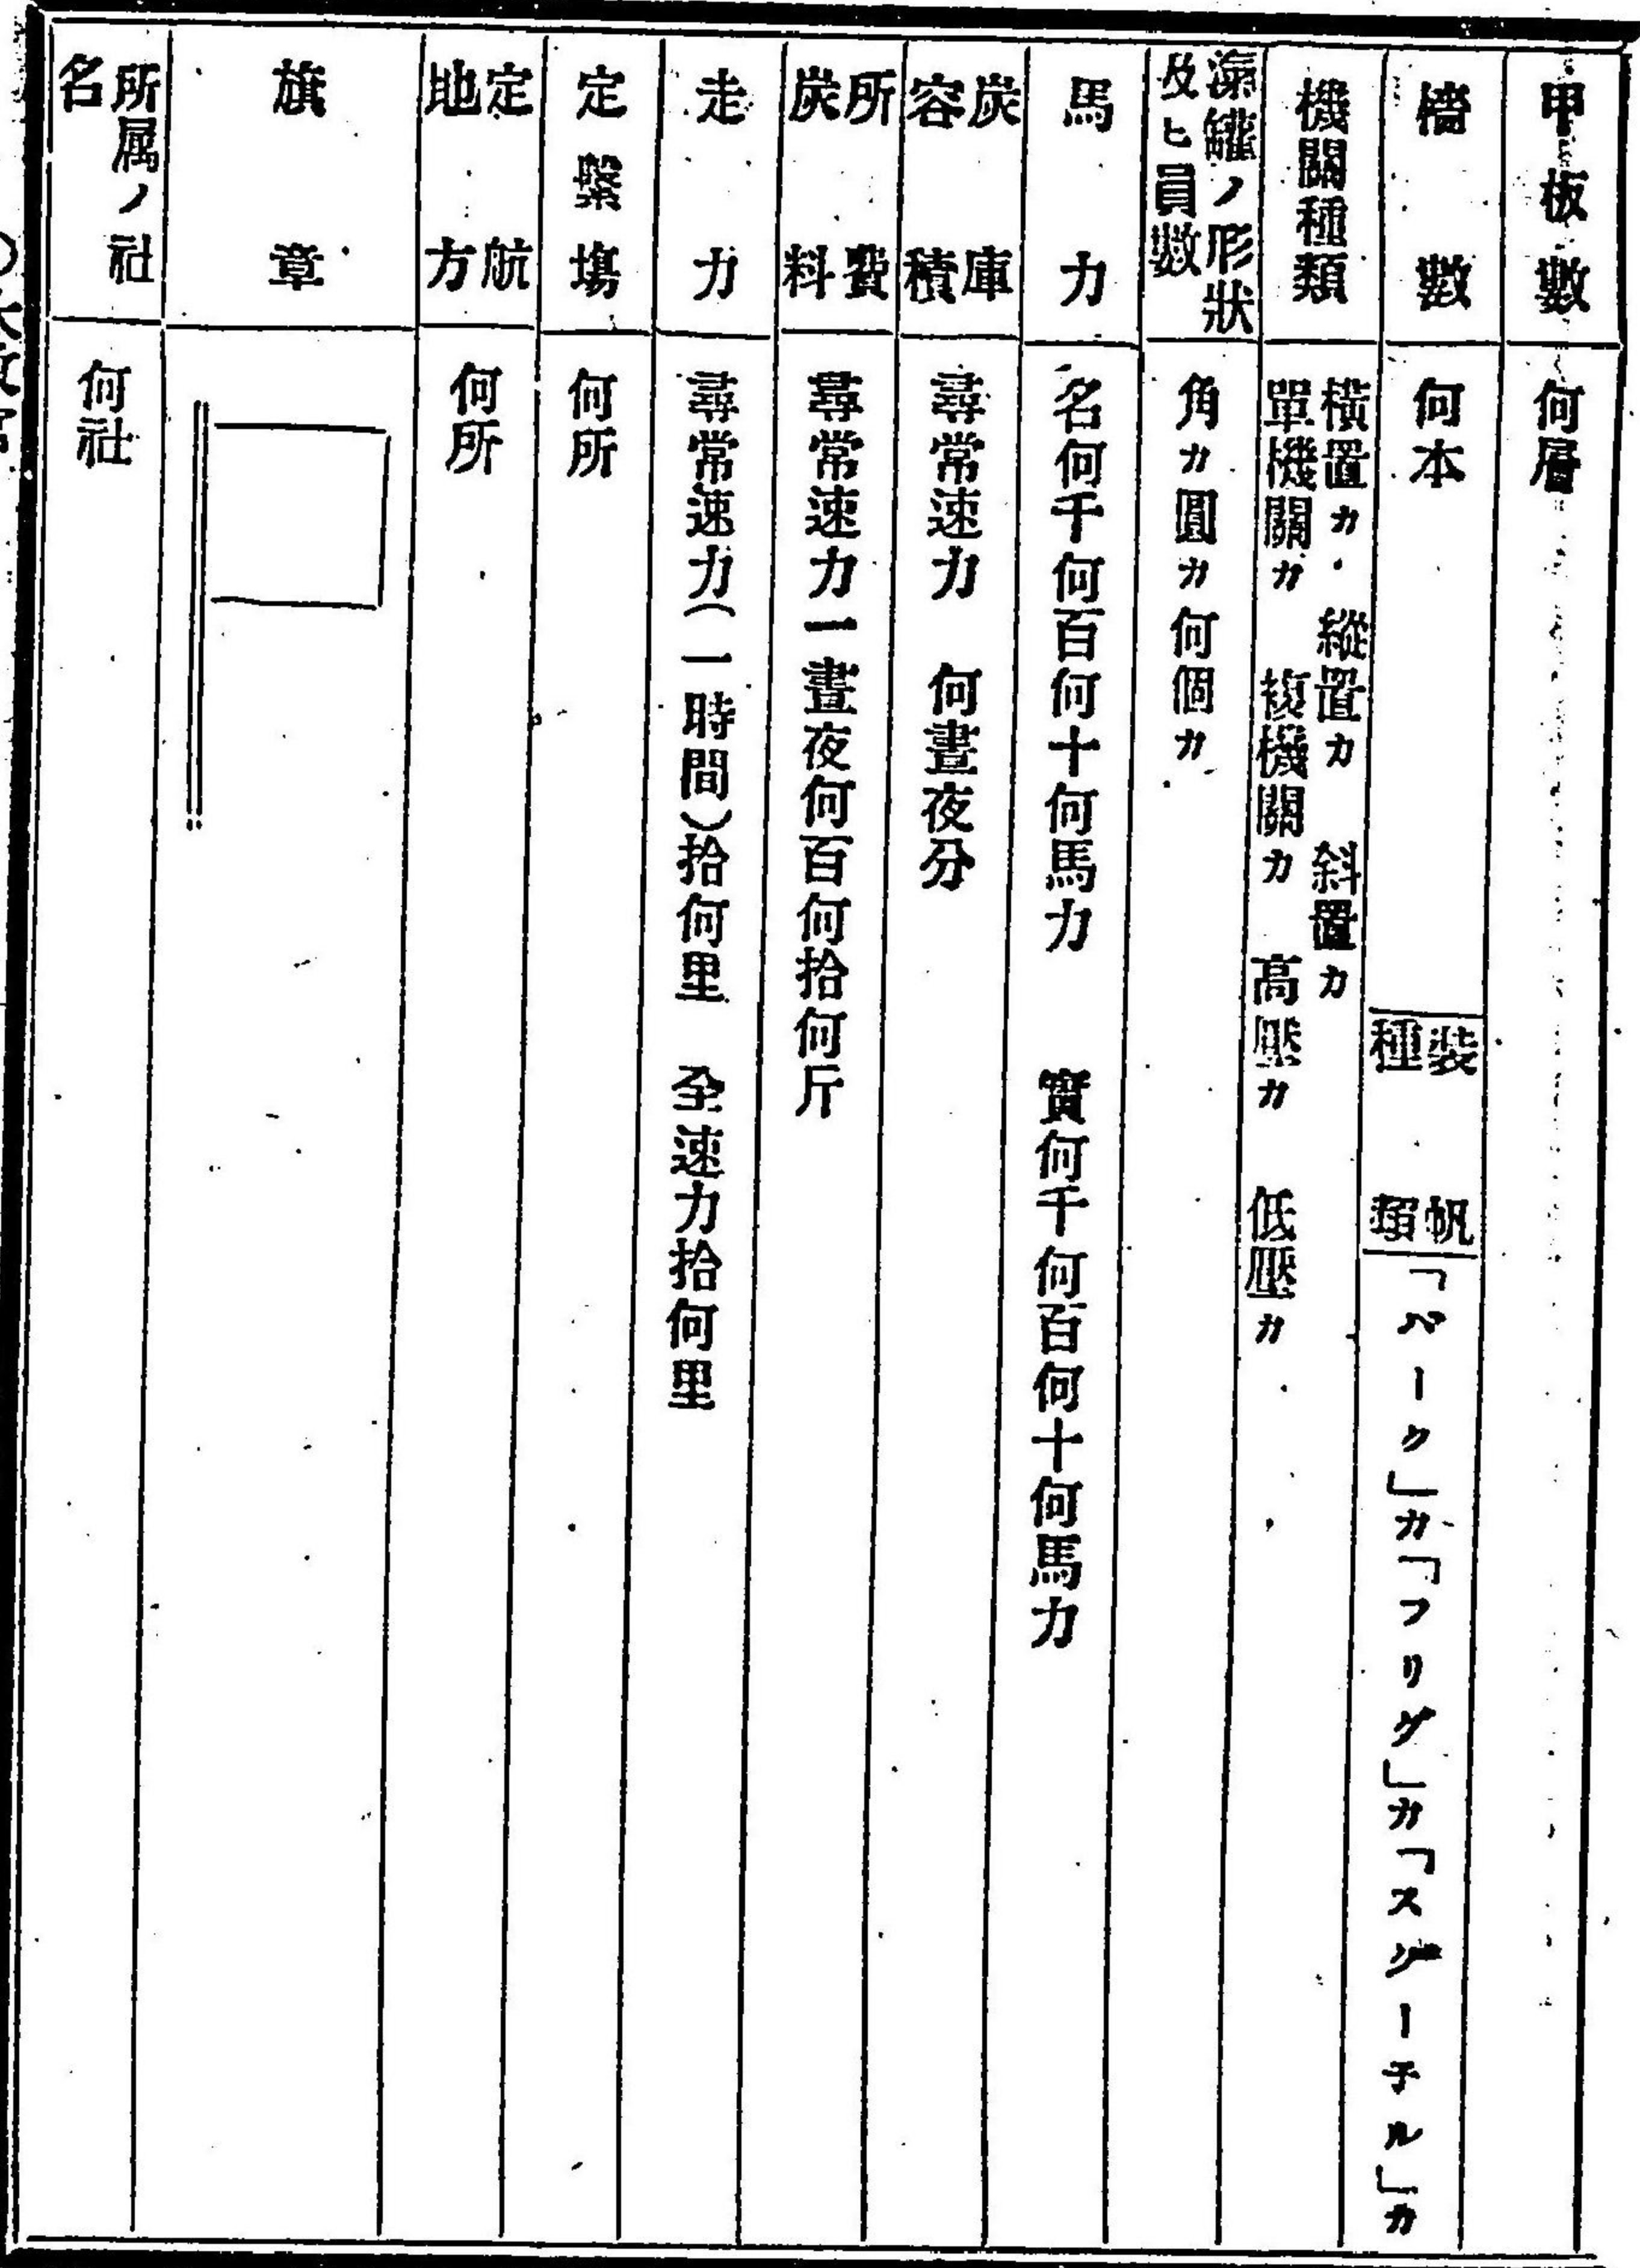 甲板數 何層
檣數 何本 裝帆種類 「バーク」カ「フリグ」カ「スクーチル」カ
機關種類 橫置カ 縱置カ 斜置カ
單機關カ 複機關カ 高壓カ 低壓カ
滊罐ノ形狀
及ヒ員數 角カ圓カ何個カ
馬力 名何千何百何十何馬力 實何千何百何十何馬力
炭庫容積 尋常速力 何晝夜分
所費炭料 尋常速力一晝夜何百何拾何斤
走力 尋常速力(一時間)拾何里 全速力拾何里
定繫塲 何所
定航地方 何所
旗章
所属ノ社名 何社